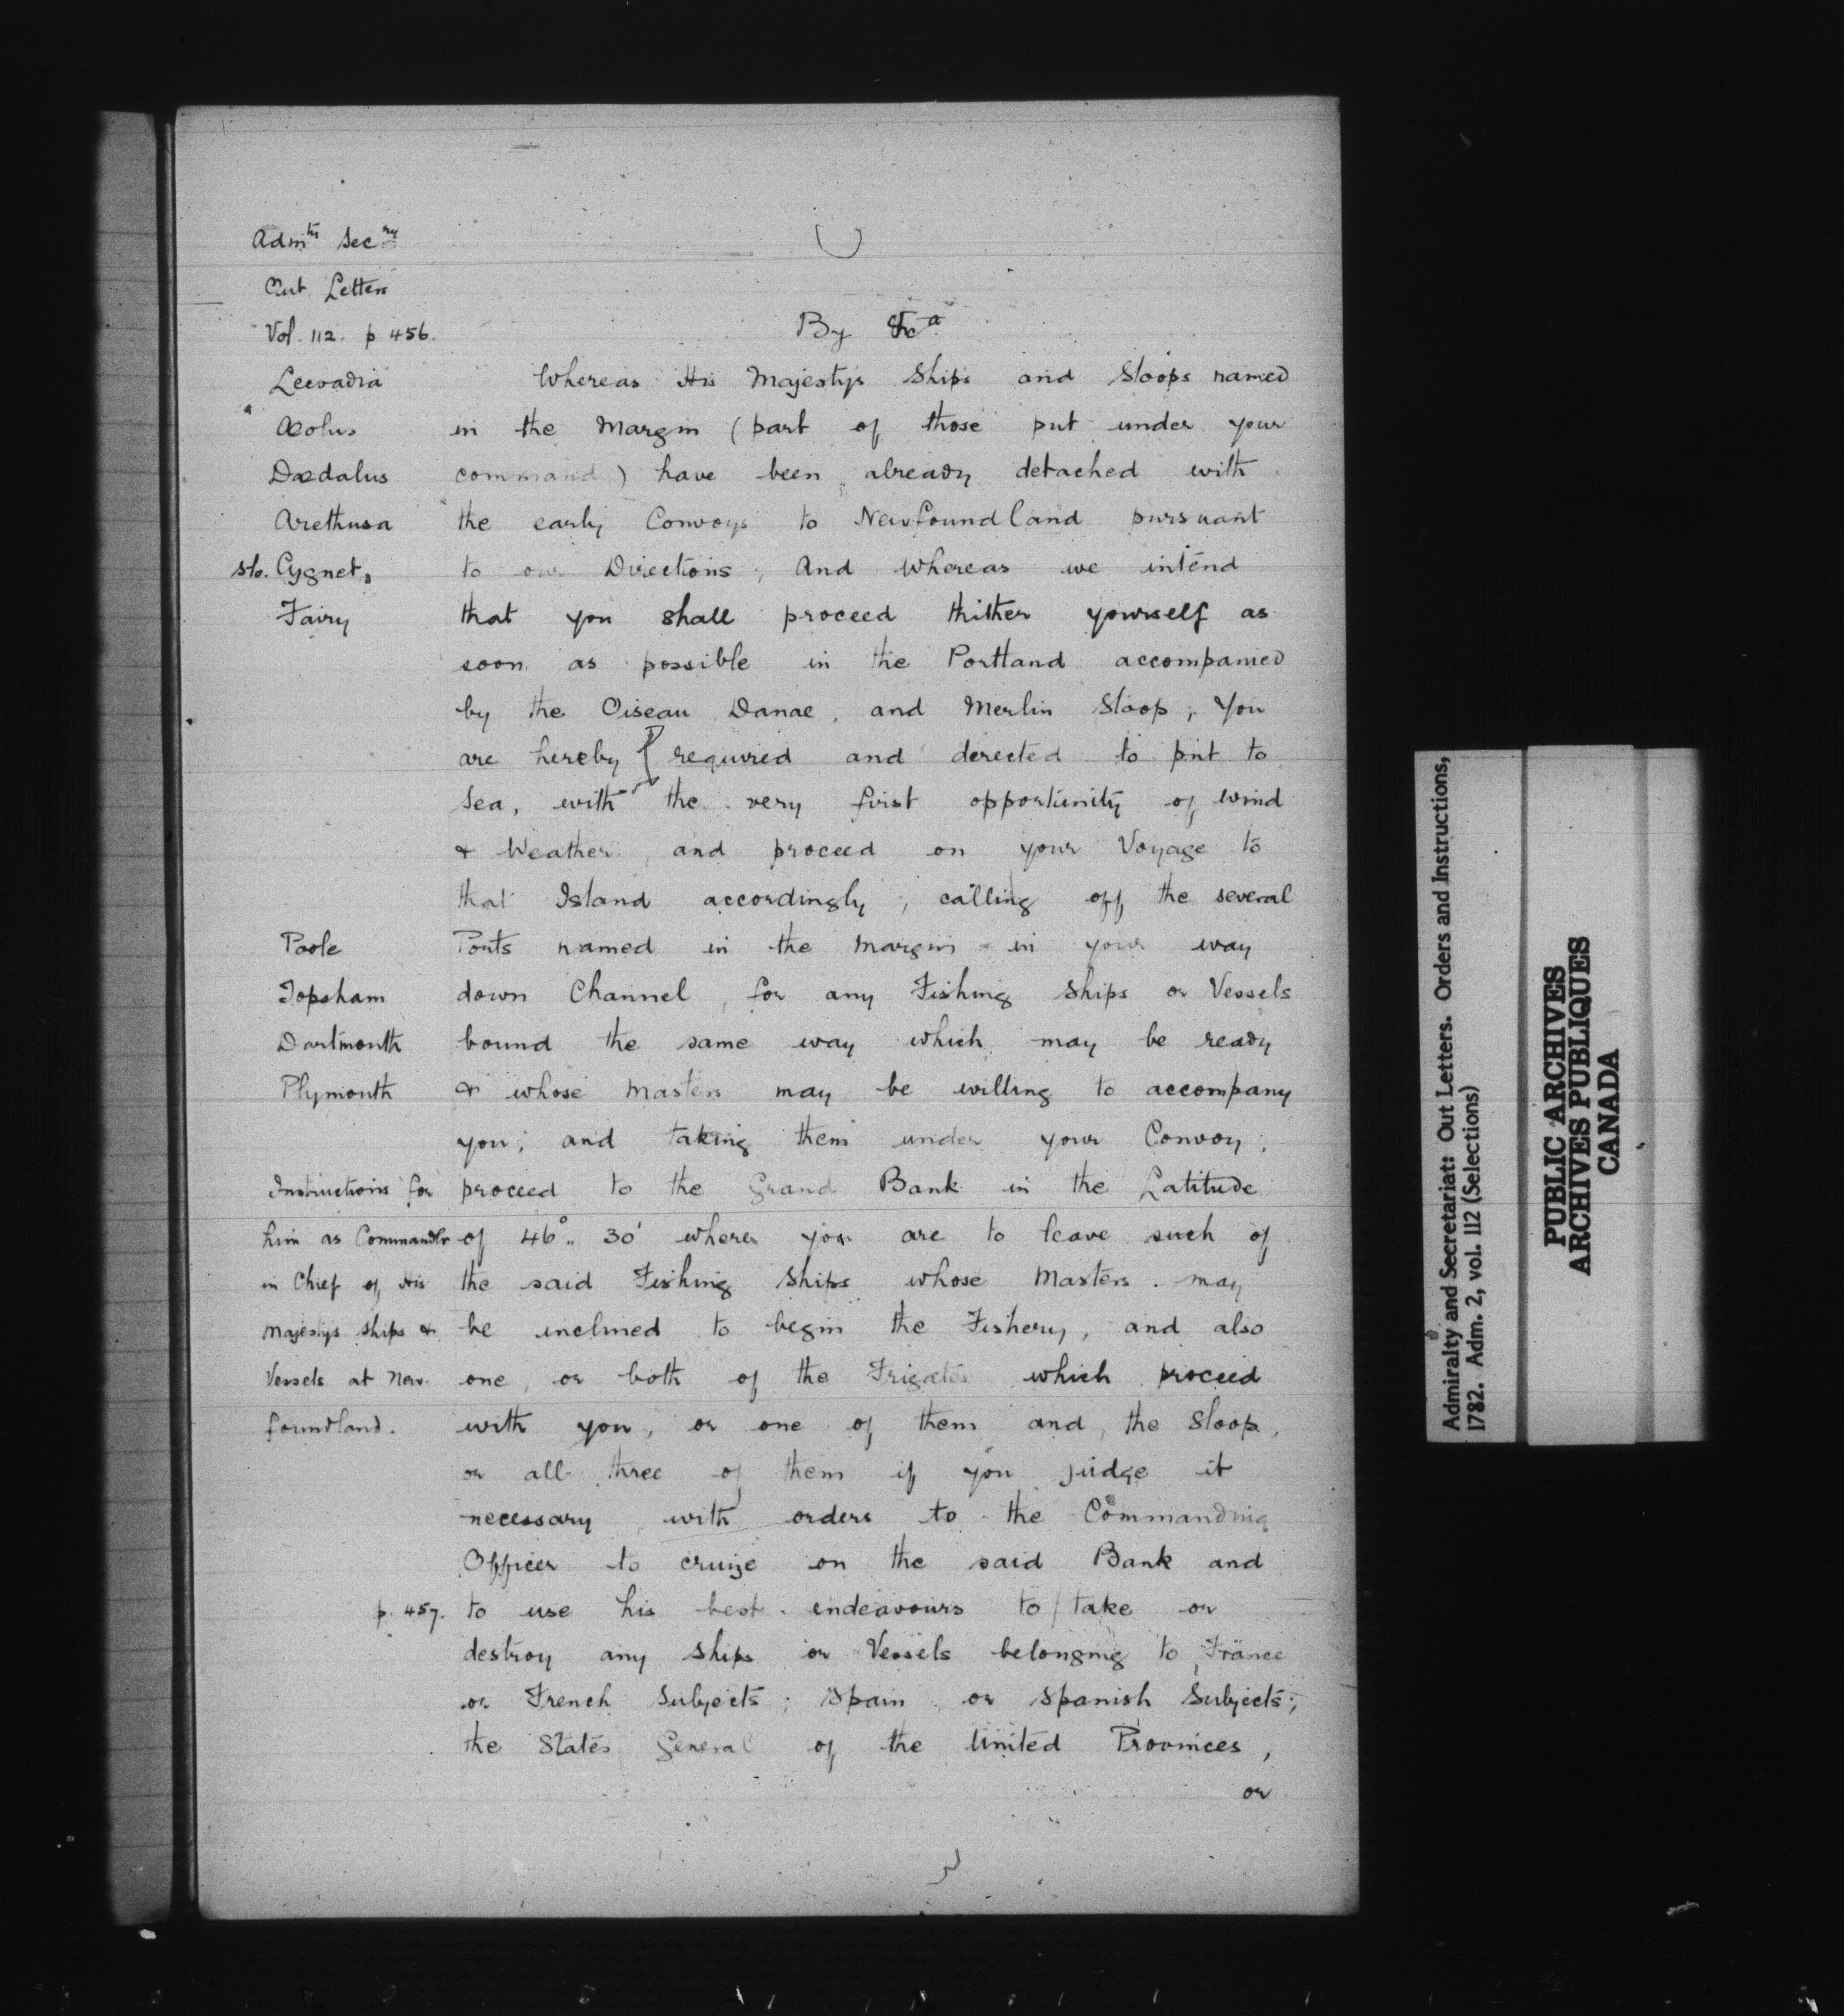 Admty Secry
Out Letters
Vol. 112. p 456.
By &ca
Leevadia
Æolus
Dædalus
Arethusa
slo. Cygnet,
Fairy
Whereas His Majestys Ships and Sloops named
in the Margin (part of those put under your
command) have been already detached with
the early Convoys to Newfoundland pursuant
to our Directions; And Whereas we intend
that you shall proceed thither yourself as
soon as possible in the Portland accompanied
by the Oiseau Danae, and Merlin Sloop; You
are hereby required and derected to put to
Sea, with the very first opportunity of Wind
& Weather, and proceed on your Voyage to
that Island accordingly, calling off the several
Poole
Topsham
Dartmouth
Plymouth
Ports named in the margin in your way
down Channel, for any Fishing Ships or Vessels
bound the same way which may be ready
& whose Masters may be willing to accompany
you; and taking them under your Convoy;
Instructions for
him as Commandr
in Chief of His
Majestys Ships &
Vessels at New-
foundland.
proceed to the Grand Bank in the Latitude
of 46°.. 30' where you are to leave such of
the said Fishing Ships whose Masters may
be inclined to begin the Fishery, and also
one, or both of the Frigates which proceed
with you, or one of them and, the Sloop,
or all three of them if you judge it
necessary with orders to the Commanding
Officer to cruize on the said Bank and
p. 457.
to use his best endeavours to / take or
destroy any Ships or Vessels belonging to France
or French Subjects; Spain or Spanish Subjects;
the States General of the United Provinces,
or
Admiralty and Secretariat: Out Letters. Orders and Instructions,
1782. Adm. 2, vol. 112 (Selections)
PUBLIC ARCHIVES
ARCHIVES PUBLIQUES
CANADA